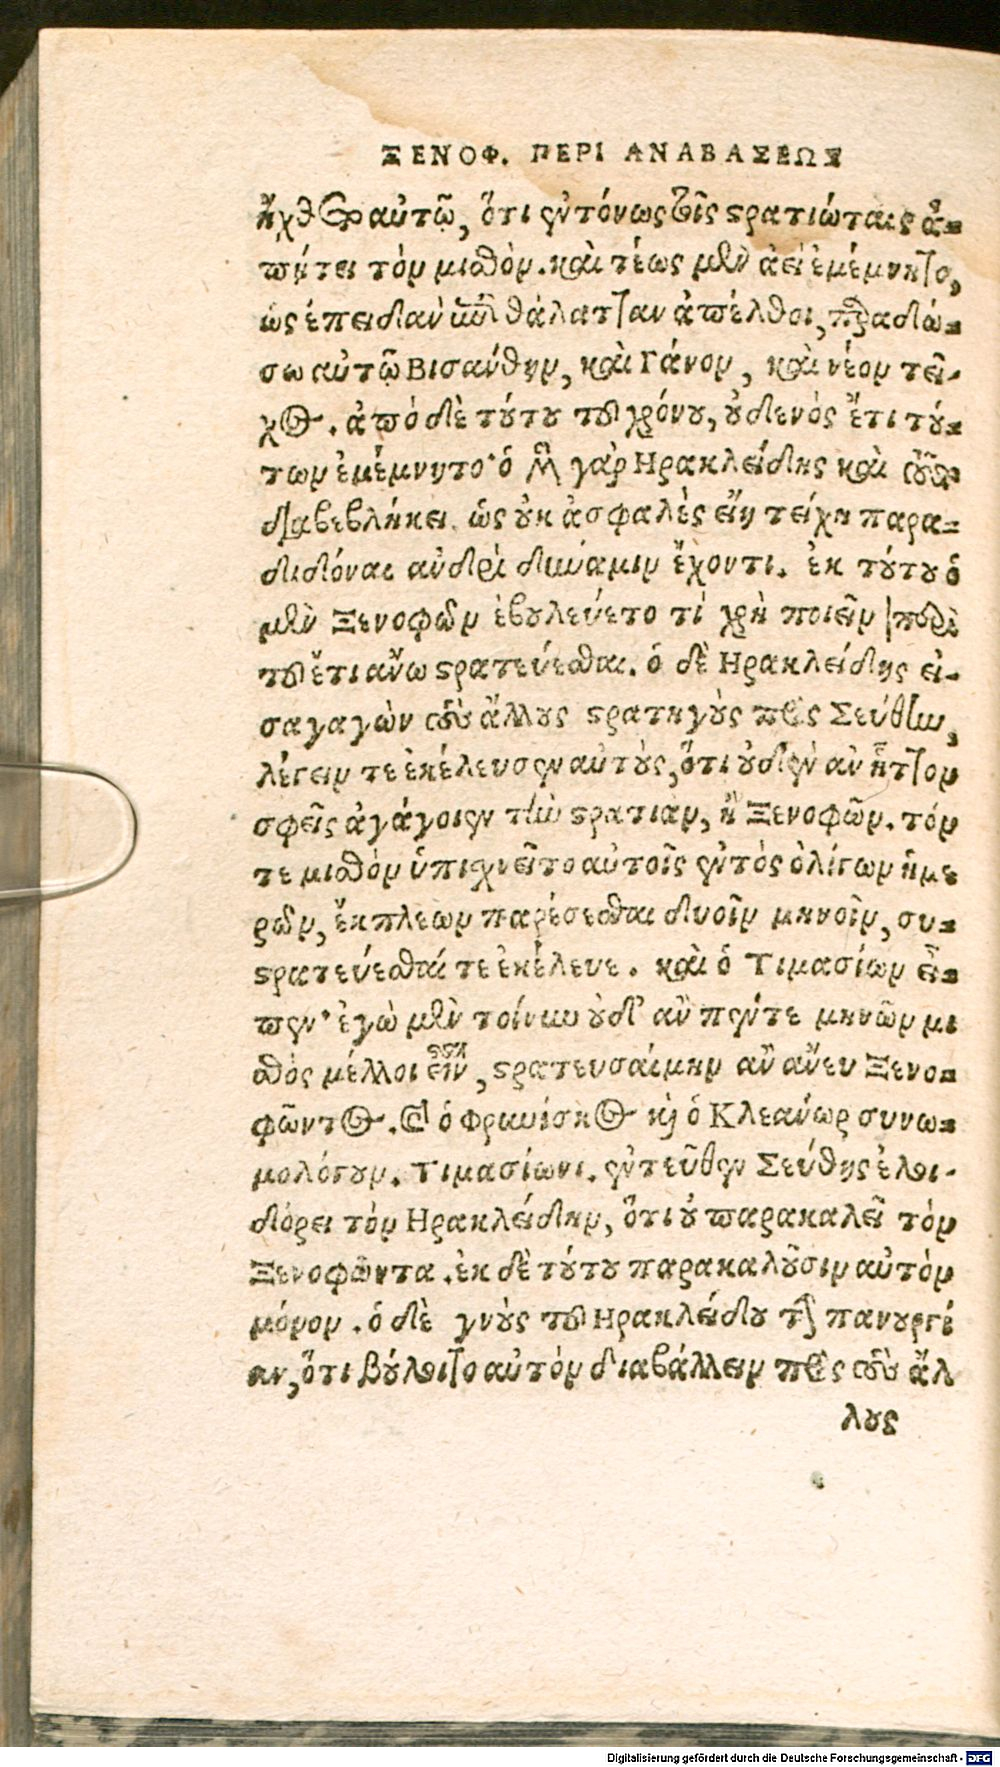 ΞΕΝΟΦ. ΠΕΡΙ ΑΝΑΒΑΣΕΩΣ
ἤχθετο αὐτῷ, ὅτι ἐντόνως τοῖς στρατιώταις ἀ-
πῄτει τὸν μισθόν. καὶ τέως μὲν ἀεὶ ἐμέμνητο,
ὡς ἐπειδὰν ἐπὶ θάλατταν ἀπέλθοι, παραδώ-
σω αὐτῷ Βισάνθην, καὶ Γάνον, καὶ νέον τεῖ-
χος. ἀπὸ δὲ τούτου τοῦ χρόνου, οὐδενὸς ἔτι τού-
των ἐμέμνητο· ὁ μὲν γὰρ Ἡρακλείδης καὶ τοῦτο
διαβεβλήκει. ὡς οὐκ ἀσφαλὲς εἴη τείχη παρα-
διδόναι ἀνδρὶ δύναμιν ἔχοντι. ἐκ τούτου ὁ
μὲν Ξενοφῶν ἐβουλεύετο τί χρὴ ποιεῖν περὶ
τοῦ ἔτι ἄνω στρατεύεσθαι. ὁ δὲ Ἡρακλείδης εἰ-
σαγαγὼν τοὺς ἄλλους στρατηγοὺς πρὸς Σεύθην,
λέγειν τε ἐκέλευσεν αὐτοὺς, ὅτι οὐδὲν ἂν ἧττον
σφεῖς ἀγάγοιεν τὴν στρατιὰν, ἢ Ξενοφῶν. τόν
τε μισθὸν ὑπισχνεῖτο αὐτοῖς ἐντὸς ὀλίγων ἡμε
ρῶν, ἔκπλεων παρέσεσθαι δυοῖν μηνοῖν, συ-
στρατεύεσθαί τε ἐκέλευε. καὶ ὁ Τιμασίων εἶ-
πεν· ἐγὼ μὲν τοίνυν οὐδ' ἂν πέντε μηνῶν μι
σθὸς μέλλοι εἶναι, στρατευσαίμην ἂν ἄνευ Ξενο-
φῶντος. καὶ ὁ Φρυνίσκος καὶ ὁ Κλεάνωρ συνω-
μολόγουν. Τιμασίωνι. ἐντεῦθεν Σεύθης ἐλοι-
δόρει τὸν Ἡρακλείδην, ὅτι οὐ παρακαλεῖ τὸν
Ξενοφῶντα. ἐκ δὲ τούτου παρακαλοῦσιν αὐτὸν
μόνον. ὁ δὲ γνοὺς τοῦ Ἡρακλείδου τὴν πανουργί
αν, ὅτι βούλοιτο αὐτὸν διαβάλλειν πρὸς τοὺς ἄλ
λους
Digitalisierung gefördert durch die Deutsche Forschungsgemeinschaft - DFG